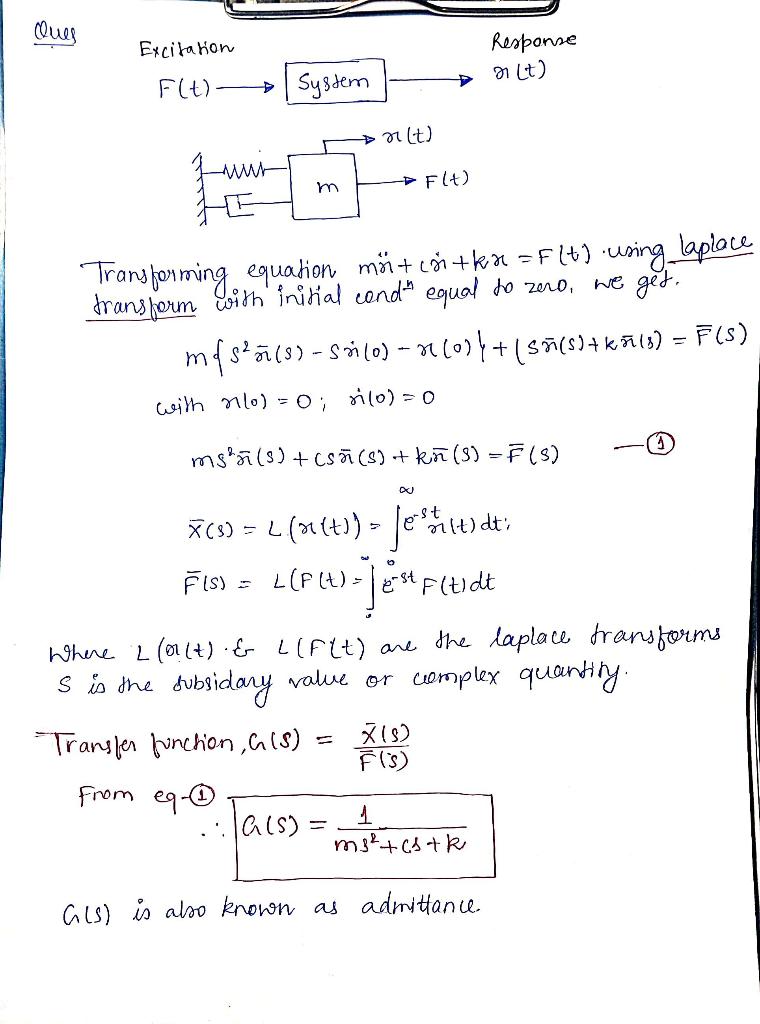 Ques
Excitation
Response
F(t)
System
x(t)
x(t)
m
F(t)
Transforming equation mẍ + cẋ + kx = F(t) using laplace
transform with initial condⁿ equal to zero, we get.
m{s²x̄(s) - sẋ(0) - x(0)} + (sx̄(s) + kx̄(s) = F̄(s)
with x(0) = 0; ẋ(0) = 0
ms²x̄(s) + csx̄(s) + kx̄(s) = F̄(s) — ①
X̄(s) = L(x(t)) = ∫₀^∞ e^-st x(t) dt;
F̄(s) = L(F(t) = ∫₀^∞ e^-st F(t) dt
Where L(x(t) & L(F(t) are the laplace transforms
S is the subsidary value or complex quantity.
Transfer function, G(S) = X̄(s) / F̄(s)
From eq-①
∴ G(S) = 1 / ms²+cs+k
G(S) is also known as admittance.